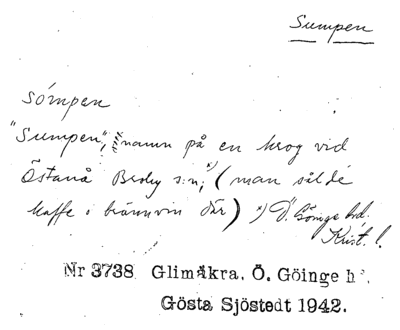 Sumpen
sómpen
"Sumpen", namn på en krog vid
Östanå Broby s:n, x) (man sålde
kaffe i brännvin där) x) Ö. Göinge hd.
Krist. l.
Nr 3738 Glimåkra. Ö. Göinge hd.
Gösta Sjöstedt 1942.